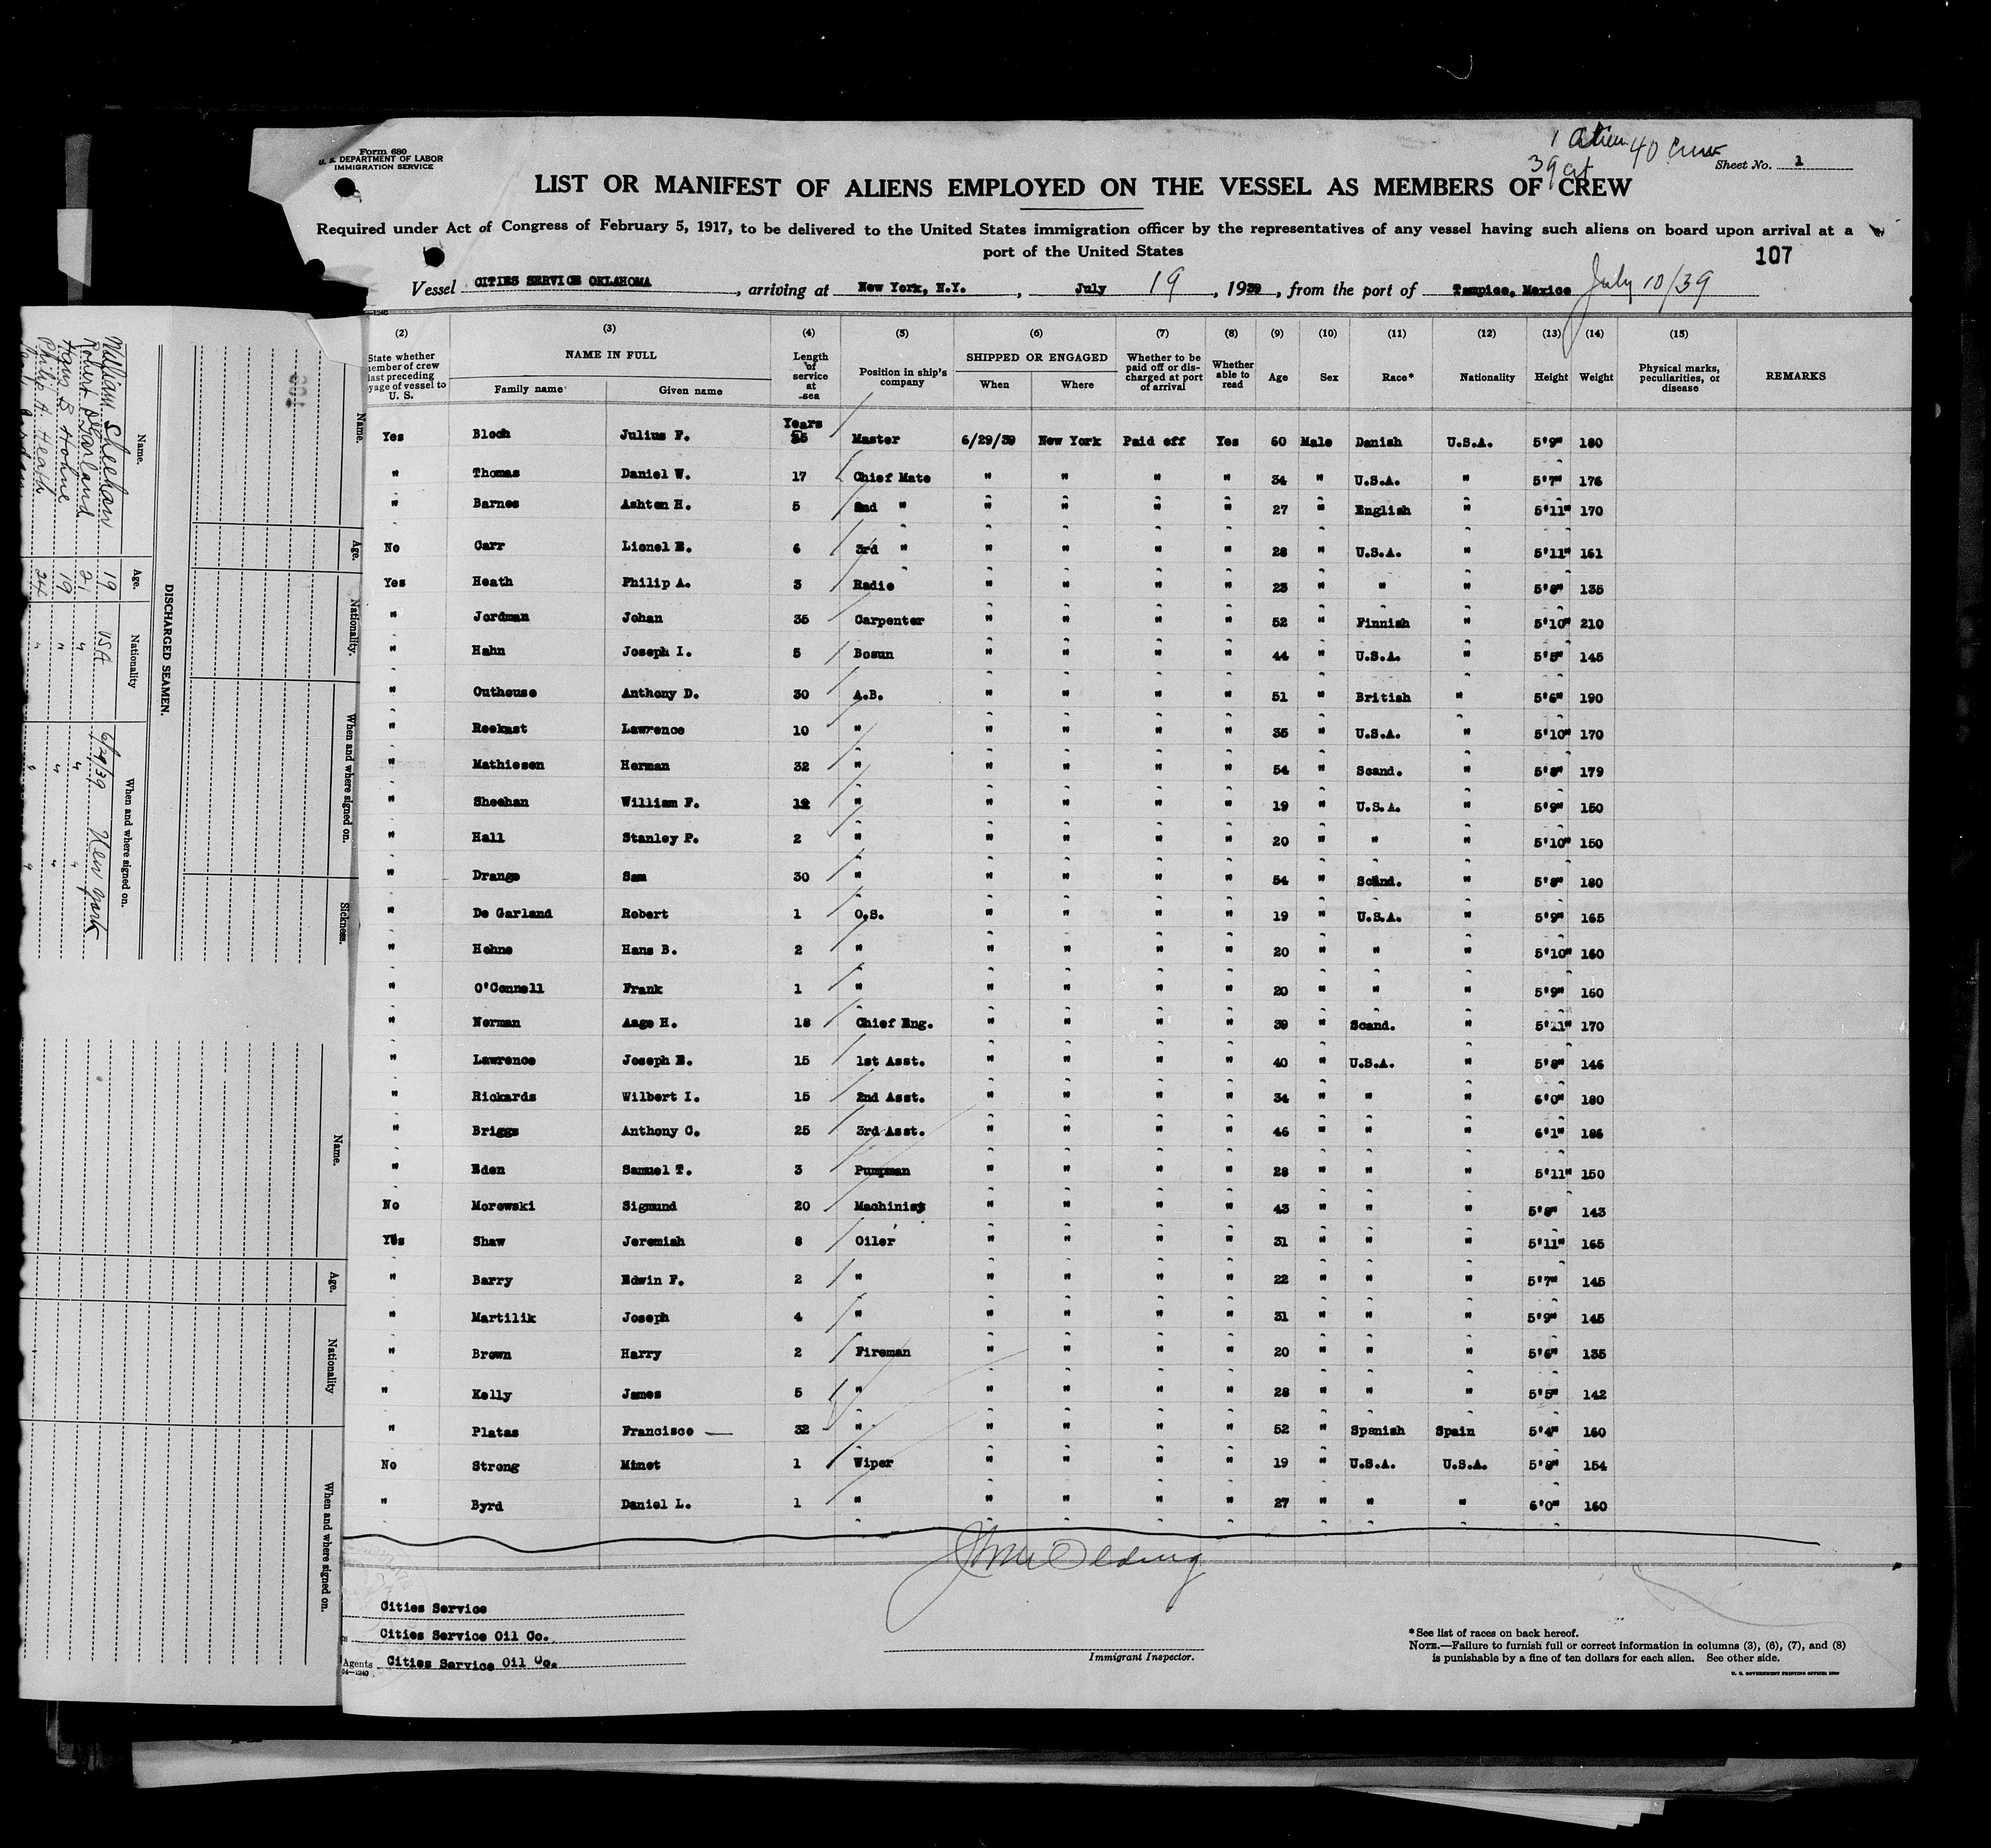 Form 680
U. S. DEPARTMENT OF LABOR
IMMIGRATION SERVICE
1 Alien 40 Crew
39
Sheet No. 1
LIST OR MANIFEST OF ALIENS EMPLOYED ON THE VESSEL AS MEMBERS OF CREW
Required under Act of Congress of February 5, 1917, to be delivered to the United States immigration officer by the representatives of any vessel having such aliens on board upon arrival at a
port of the United States
107
Vessel CITIES SERVICE OKLAHOMA, arriving at New York, N.Y., July 19, 1939, from the port of Tampico, Mexico July 10/39
(2) (3) (4) (5) (6) (7) (8) (9) (10) (11) (12) (13) (14) (15)
State whether member of crew last preceding voyage of vessel to U. S. NAME IN FULL Family name Given name Length of service at sea Position in ship's company SHIPPED OR ENGAGED When Where Whether to be paid off or discharged at port of arrival Whether able to read Age Sex Race* Nationality Height Weight Physical marks, peculiarities, or disease REMARKS
Years
Yes Bloch Julius F. 35 Master 6/29/39 New York Paid off Yes 60 Male Danish U.S.A. 5'9" 180
" Thomas Daniel W. 17 Chief Mate " " " " 34 " U.S.A. " 5'7" 176
" Barnes Ashton H. 5 2nd " " " " " 27 " English " 5'11" 170
No Carr Lionel E. 6 3rd " " " " " 28 " U.S.A. " 5'11" 161
Yes Heath Philip A. 3 Radio " " " " 23 " " " 5'8" 135
" Jordman Johan 35 Carpenter " " " " 52 " Finnish " 5'10" 210
" Hahn Joseph I. 5 Bosun " " " " 44 " U.S.A. " 5'5" 145
" Outhouse Anthony D. 30 A.B. " " " " 51 " British " 5'6" 190
" Reekast Lawrence 10 " " " " " 35 " U.S.A. " 5'10" 170
" Mathiesen Herman 32 " " " " " 54 " Scand. " 5'8" 179
" Sheehan William F. 12 " " " " " 19 " U.S.A. " 5'9" 150
" Hall Stanley P. 2 " " " " " 20 " " " 5'10" 150
" Drange Sam 30 " " " " " 54 " Scand. " 5'8" 180
" De Garland Robert 1 O.S. " " " " 19 " U.S.A. " 5'9" 165
" Hohne Hans B. 2 " " " " " 20 " " " 5'10" 160
" O'Connell Frank 1 " " " " " 20 " " " 5'9" 160
" Norman Aage H. 18 Chief Eng. " " " " 39 " Scand. " 5'11" 170
" Lawrence Joseph E. 15 1st Asst. " " " " 40 " U.S.A. " 5'8" 146
" Rickards Wilbert I. 15 2nd Asst. " " " " 34 " " " 6'0" 180
" Briggs Anthony C. 25 3rd Asst. " " " " 46 " " " 6'1" 186
" Eden Samuel T. 3 Pumpman " " " " 28 " " " 5'11" 150
No Morowski Sigmund 20 Machinist " " " " 43 " " " 5'8" 143
Yes Shaw Jeremiah 8 Oiler " " " " 31 " " " 5'11" 165
" Barry Edwin F. 2 " " " " " 22 " " " 5'7" 145
" Martilik Joseph 4 " " " " " 31 " " " 5'9" 145
" Brown Harry 2 Fireman " " " " 20 " " " 5'6" 135
" Kelly James 5 " " " " " 28 " " " 5'5" 142
" Platas Francisco 32 " " " " " 52 " Spanish Spain 5'4" 160
No Strong Minot 1 Wiper " " " " 19 " U.S.A. U.S.A. 5'8" 154
" Byrd Daniel L. 1 " " " " " 27 " " " 6'0" 160
Cities Service
Cities Service Oil Co.
Agents Cities Service Oil Co.
Immigrant Inspector.
*See list of races on back hereof.
NOTE.—Failure to furnish full or correct information in columns (3), (6), (7), and (8)
is punishable by a fine of ten dollars for each alien. See other side.
U. S. GOVERNMENT PRINTING OFFICE
DISCHARGED SEAMEN.
Name. Age. Nationality When and where signed on.
William Sheehan 19 USA 6/29/39 New York
Robert DeGarland 21 " " "
Hans B Hohne 19 " " "
Philip A. Heath 24 " " "
Name. Age. Nationality. When and where signed on. Sickness.
Name. Age. Nationality When and where signed on.